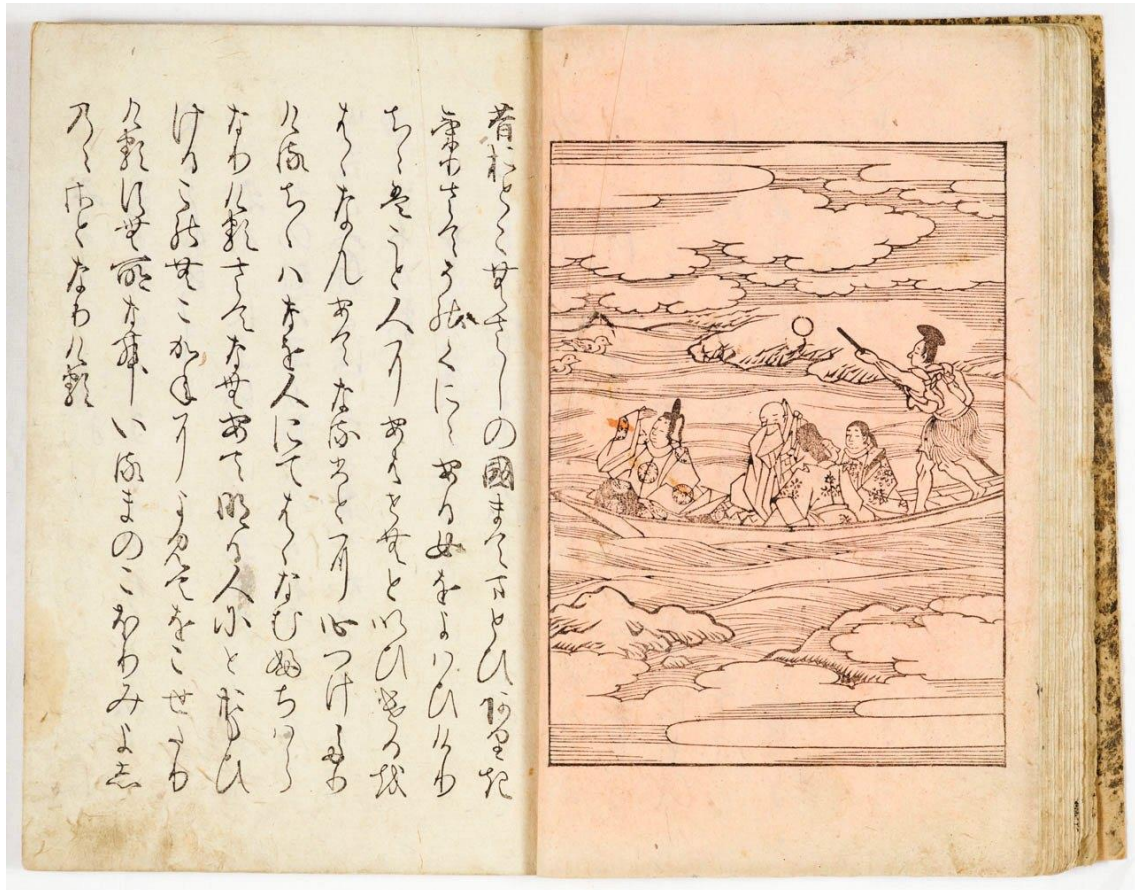 昔おとこむさしの國まてまとひありき
けりさてその くにゝある女をよはひけり
ちゝはこと人にあはせむといひけるを
はゝなんあてなるひとに心つけたり
けるちゝハなを人にてはゝなむふちはら
なりけるさてなむあてなる人にとおもひ
けるこのむこかねによみてをこせたり
けるすむ所なむいるまのこほりみよし
のゝさとなりける